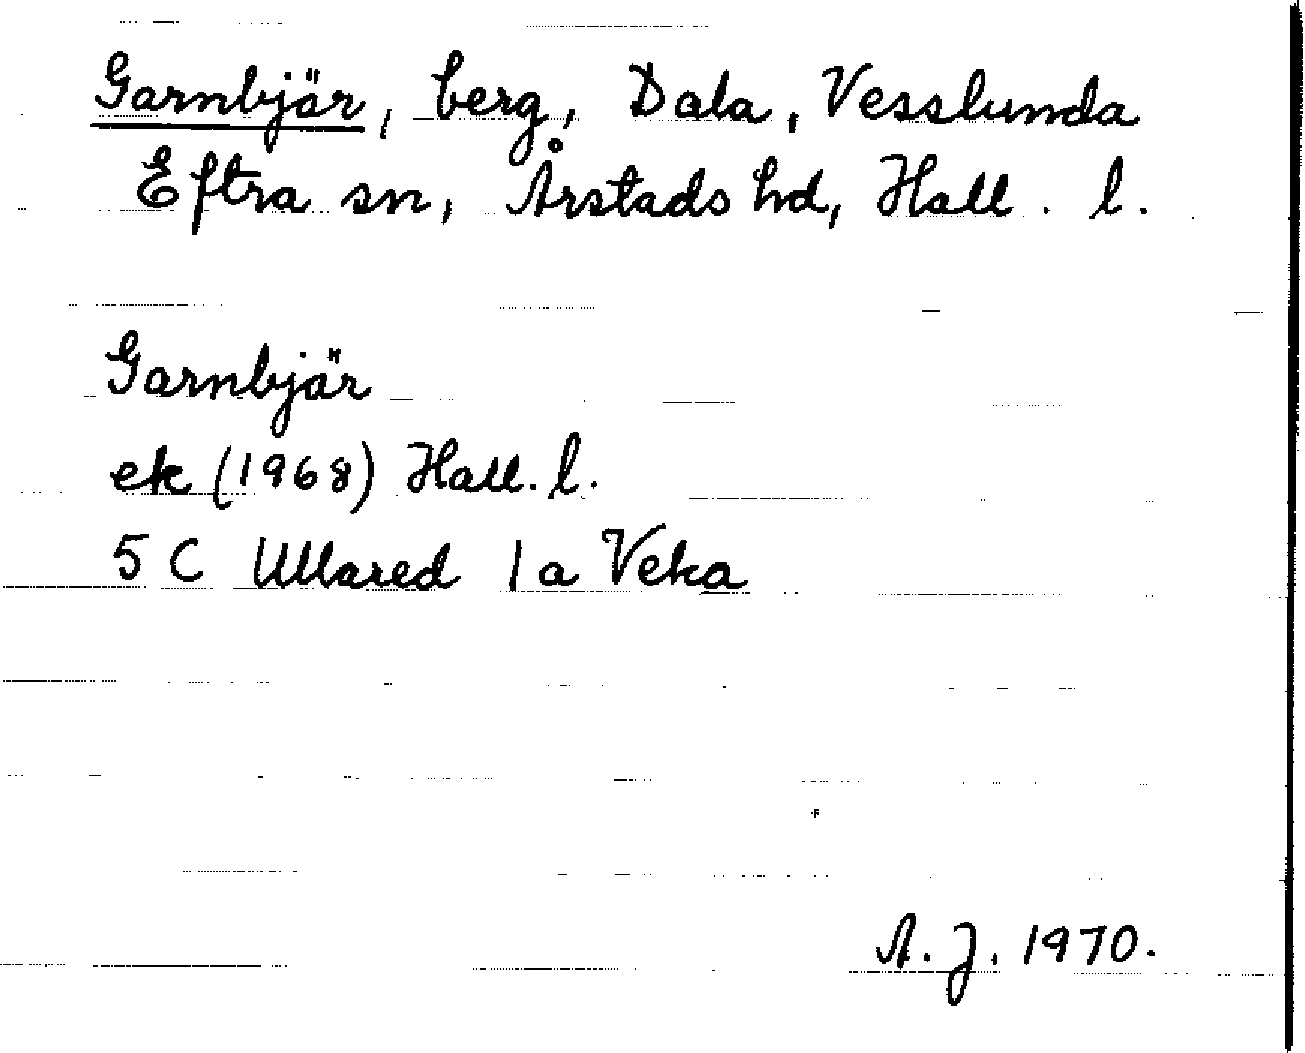 Garnbjär, berg, Dala, Vesslunda
Eftra sn, Årstads hd, Hall. l.
Garnbjär
ek (1968) Hall. l.
5 C Ullared 1 a Veka
A. J. 1970.